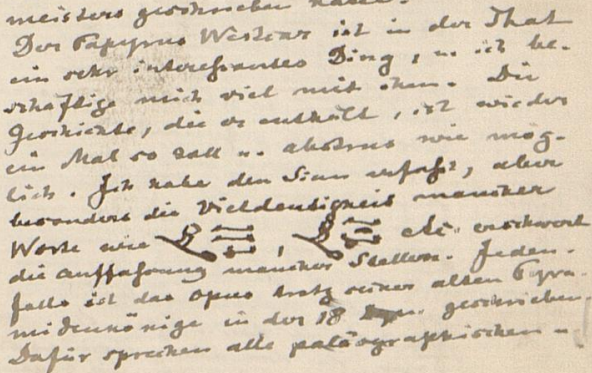 meisters geschrieben habe.
Der Papyrus Westcar ist in der That
ein sehr interessantes Ding, u. ich be-
schäftige mich viel mit ihm. Die
Geschichte, die er enthält, ist wieder
ein Mal so toll u. abstrus wie mög-
lich. Ich habe den Sinn erfaßt, aber
besonders die Vieldeutigkeit mancher
Worte wie , etc. erschwert
die Auffassung mancher Stellen. Jeden-
falls ist das Opus trotz seiner alten Pyra-
midenkönige in der 18 geschrieben.
Dafür sprechen alle paläographischen u.